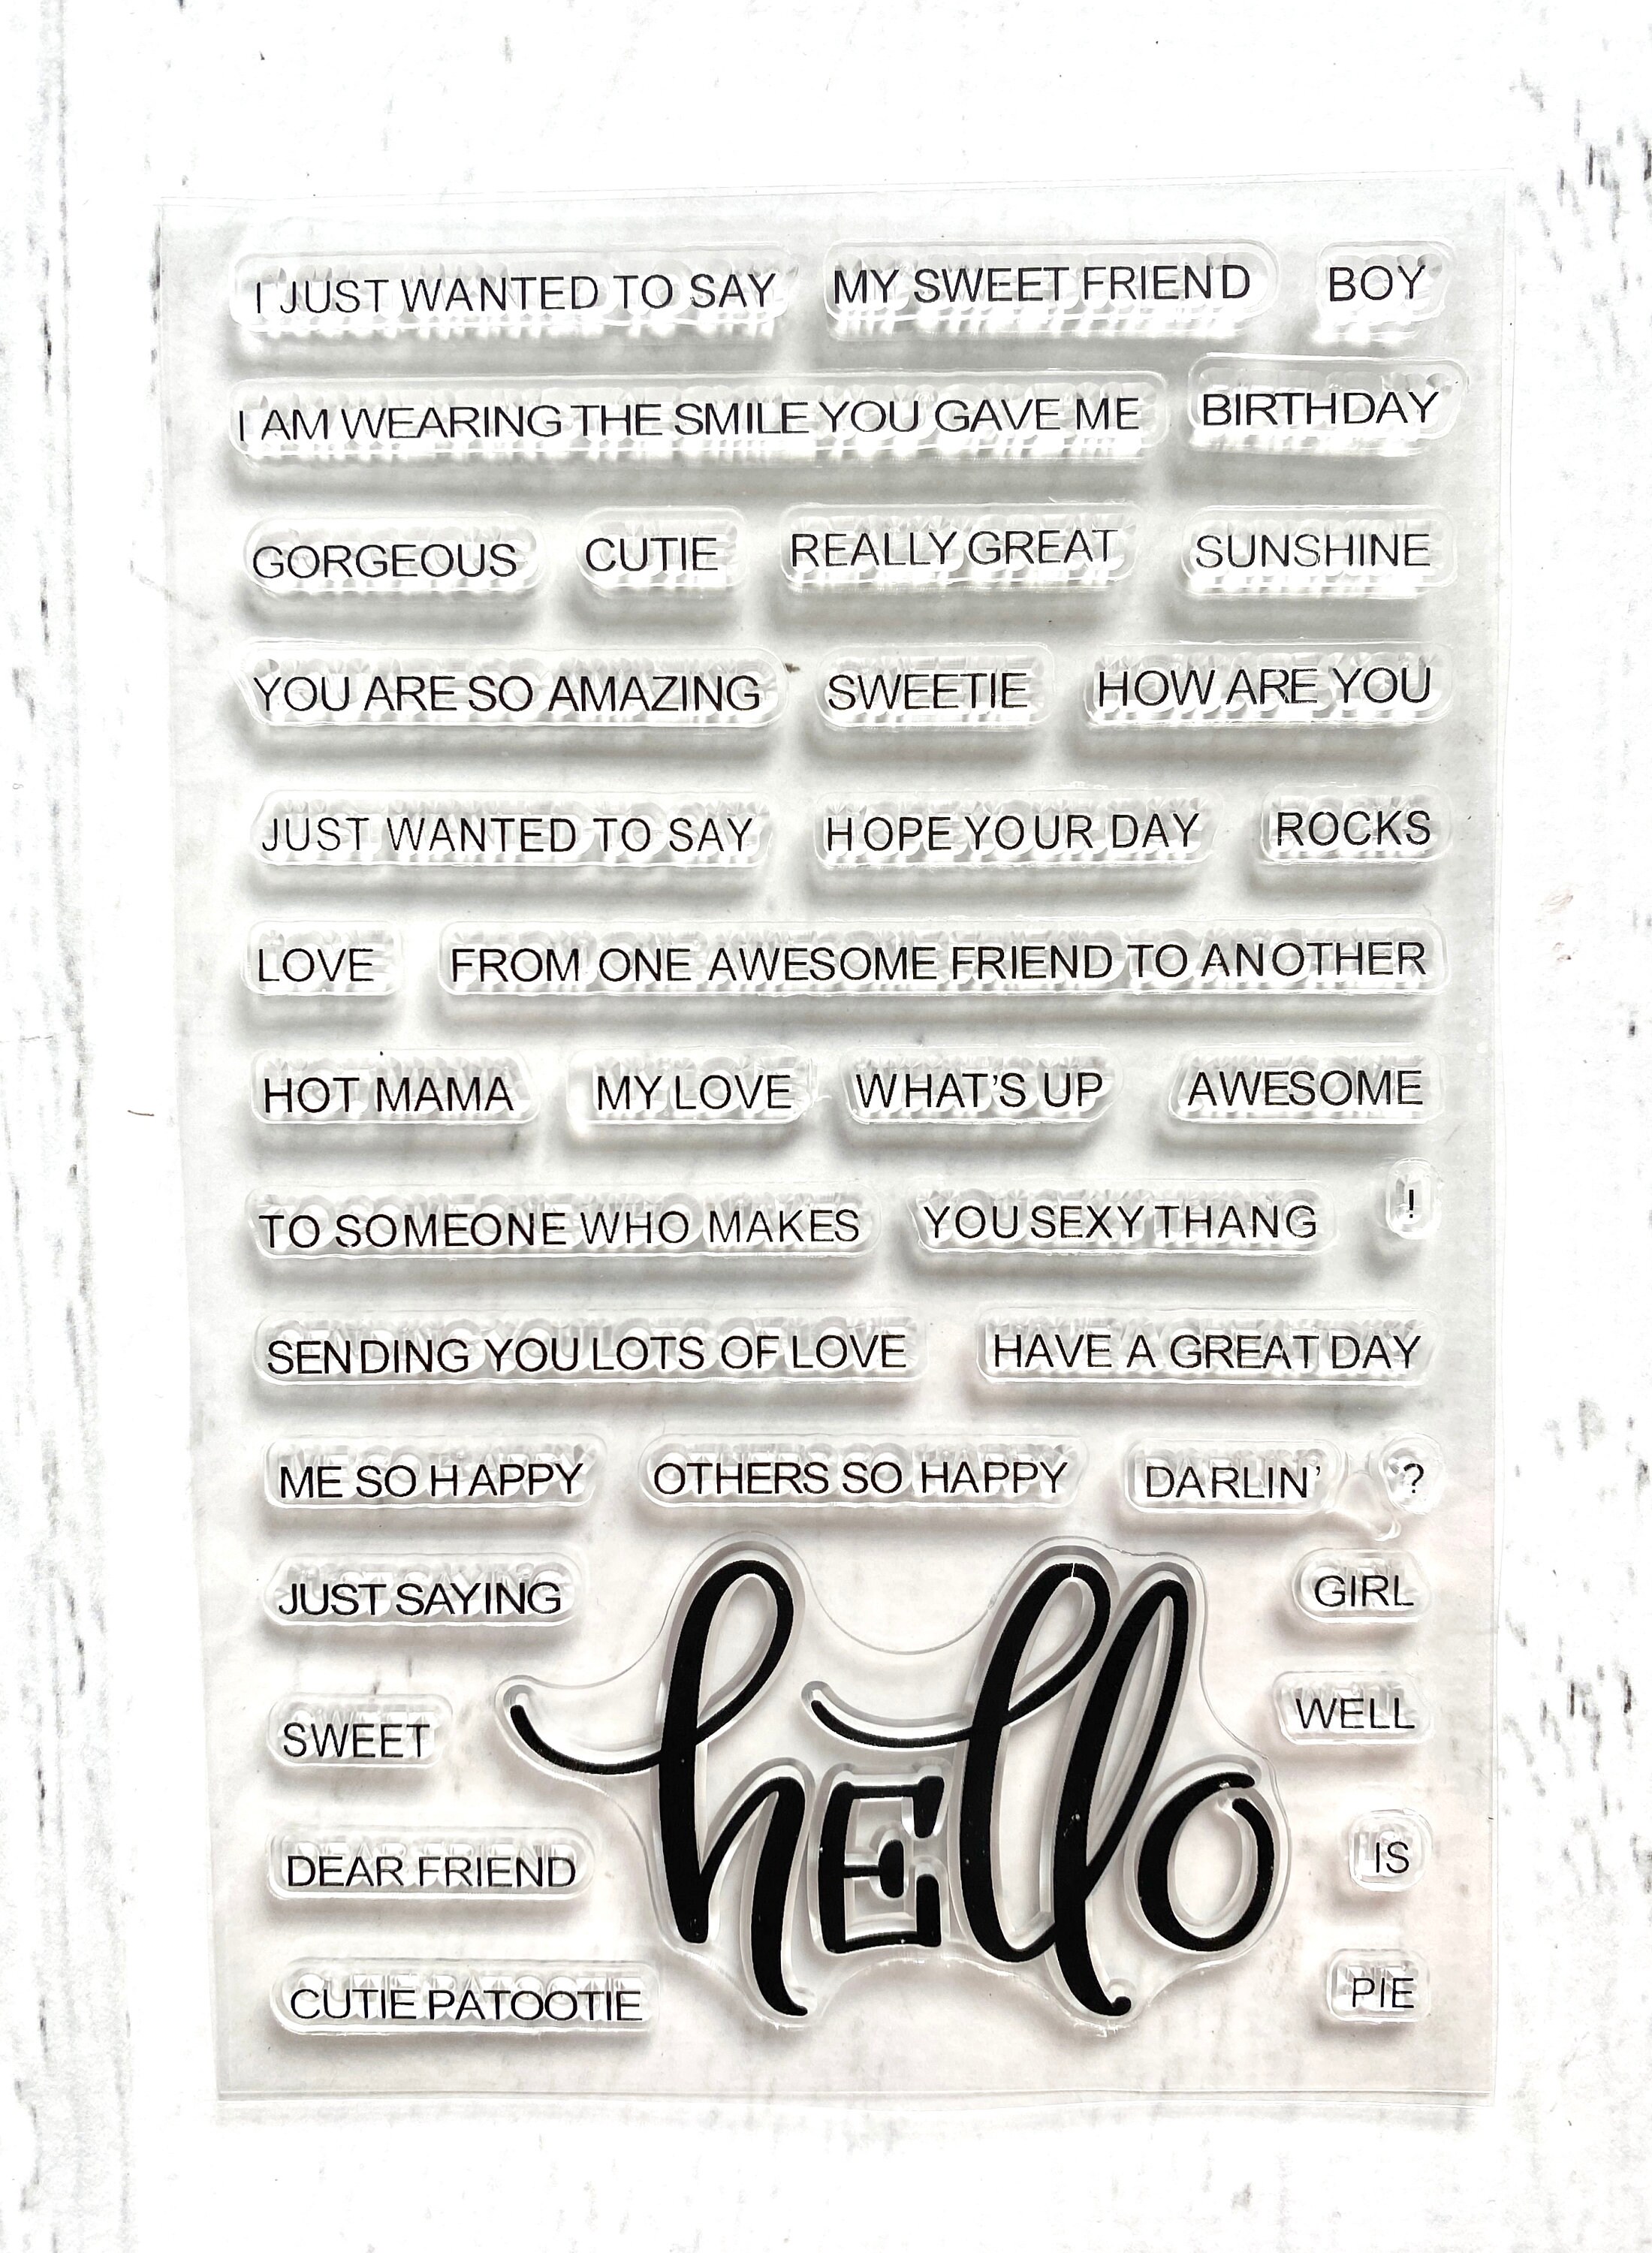 I JUST WANTED TO SAY MY SWEET FRIEND BOY
I AM WEARING THE SMILE YOU GAVE ME BIRTHDAY
GORGEOUS CUTIE REALLY GREAT SUNSHINE
YOU ARE SO AMAZING SWEETIE HOW ARE YOU
JUST WANTED TO SAY HOPE YOUR DAY ROCKS
LOVE FROM ONE AWESOME FRIEND TO ANOTHER
HOT MAMA MY LOVE WHAT'S UP AWESOME
TO SOMEONE WHO MAKES YOU SEXY THANG !
SENDING YOU LOTS OF LOVE HAVE A GREAT DAY
ME SO HAPPY OTHERS SO HAPPY DARLIN' ?
JUST SAYING GIRL
SWEET WELL
hEllo
DEAR FRIEND IS
CUTIE PATOOTIE PIE